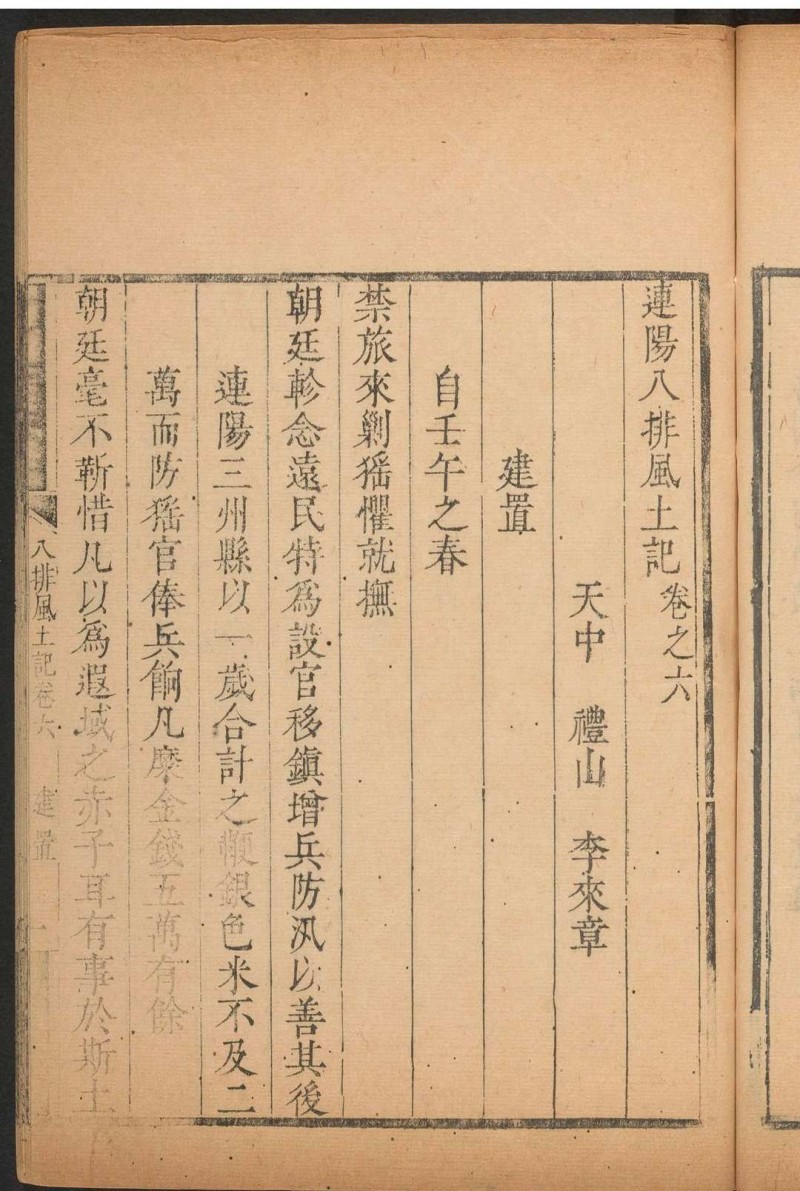 連陽八排風土記卷之六
天中 禮山 李來章
建置
自壬午之春
禁旅來剿猺懼就撫
朝廷軫念遠民特為設官移鎮增兵防汛以善其後
連陽三州縣以一歲合計之糧銀色米不及二
萬而防猺官俸兵餉凡糜金錢五萬有餘
朝廷毫不靳惜凡以為遐域之赤子耳有事於斯土
八排風土記卷六 建置 一